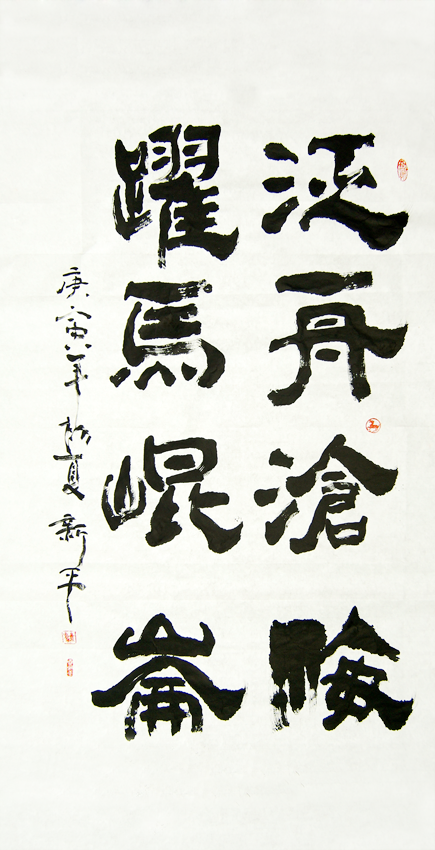 泛舟滄海
躍馬崐崙
庚寅年初夏新平